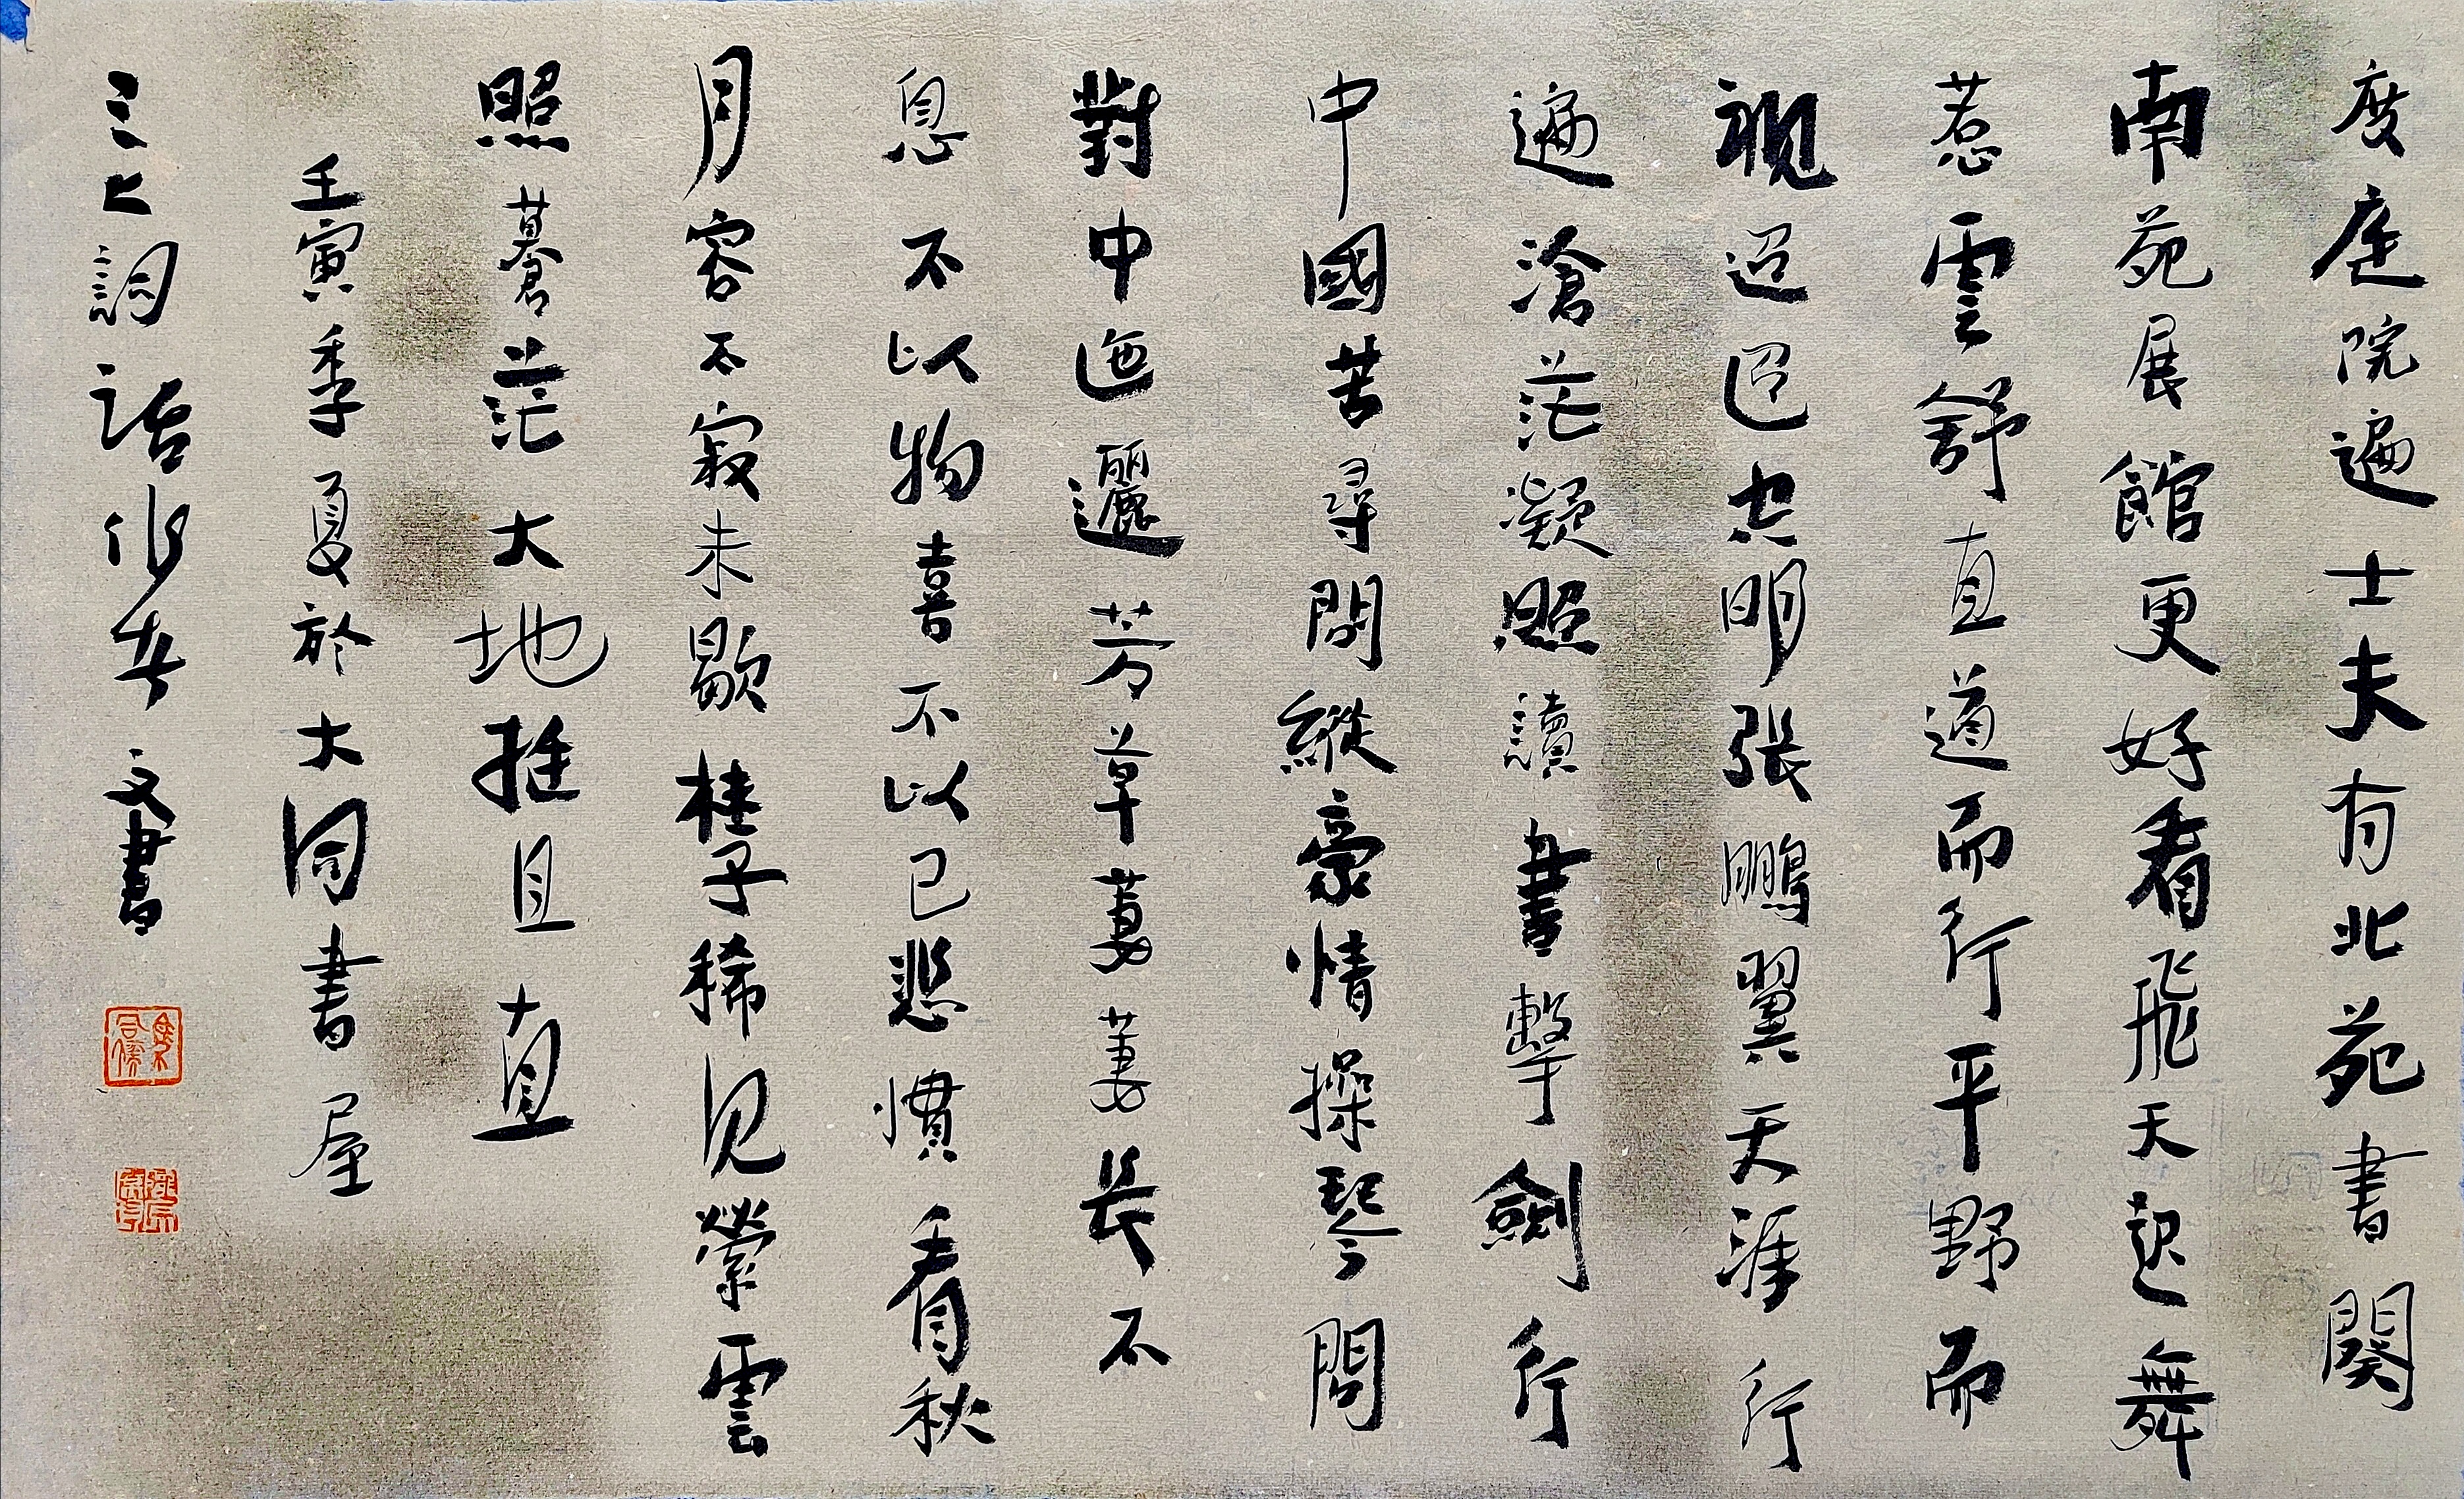 度庭院遍士夫有北苑書闋
南苑展館更好看飛天起舞
惹雲舒直道而行平野而
視迢迢空明張鵬翼天涯行
遍滄茫凝照讀書擊劍行
中國苦尋問縱豪情操琴問
對中迤邐芳草萋萋長不
息不以物喜不以己悲慣看秋
月容不寂未歇桂子稀見縈雲
照暮蒼茫大地推且直
壬寅季夏於大同書屋
三七詞話作者文書